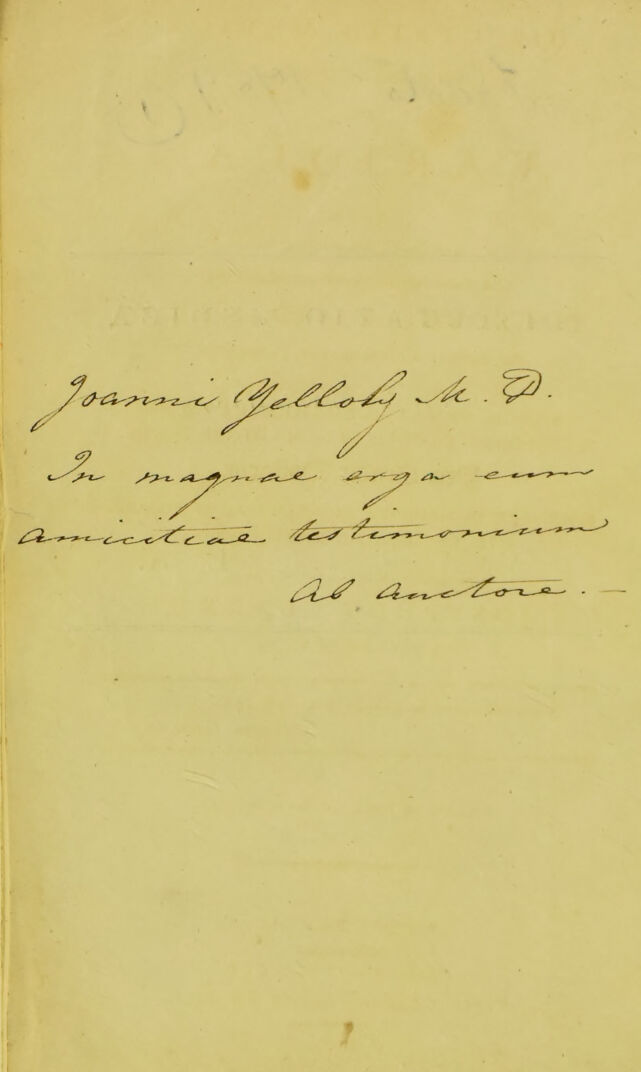 Joanni Yelloly M. D.
In magnae erga eum
amicitiae testimonium
ab auctore. —